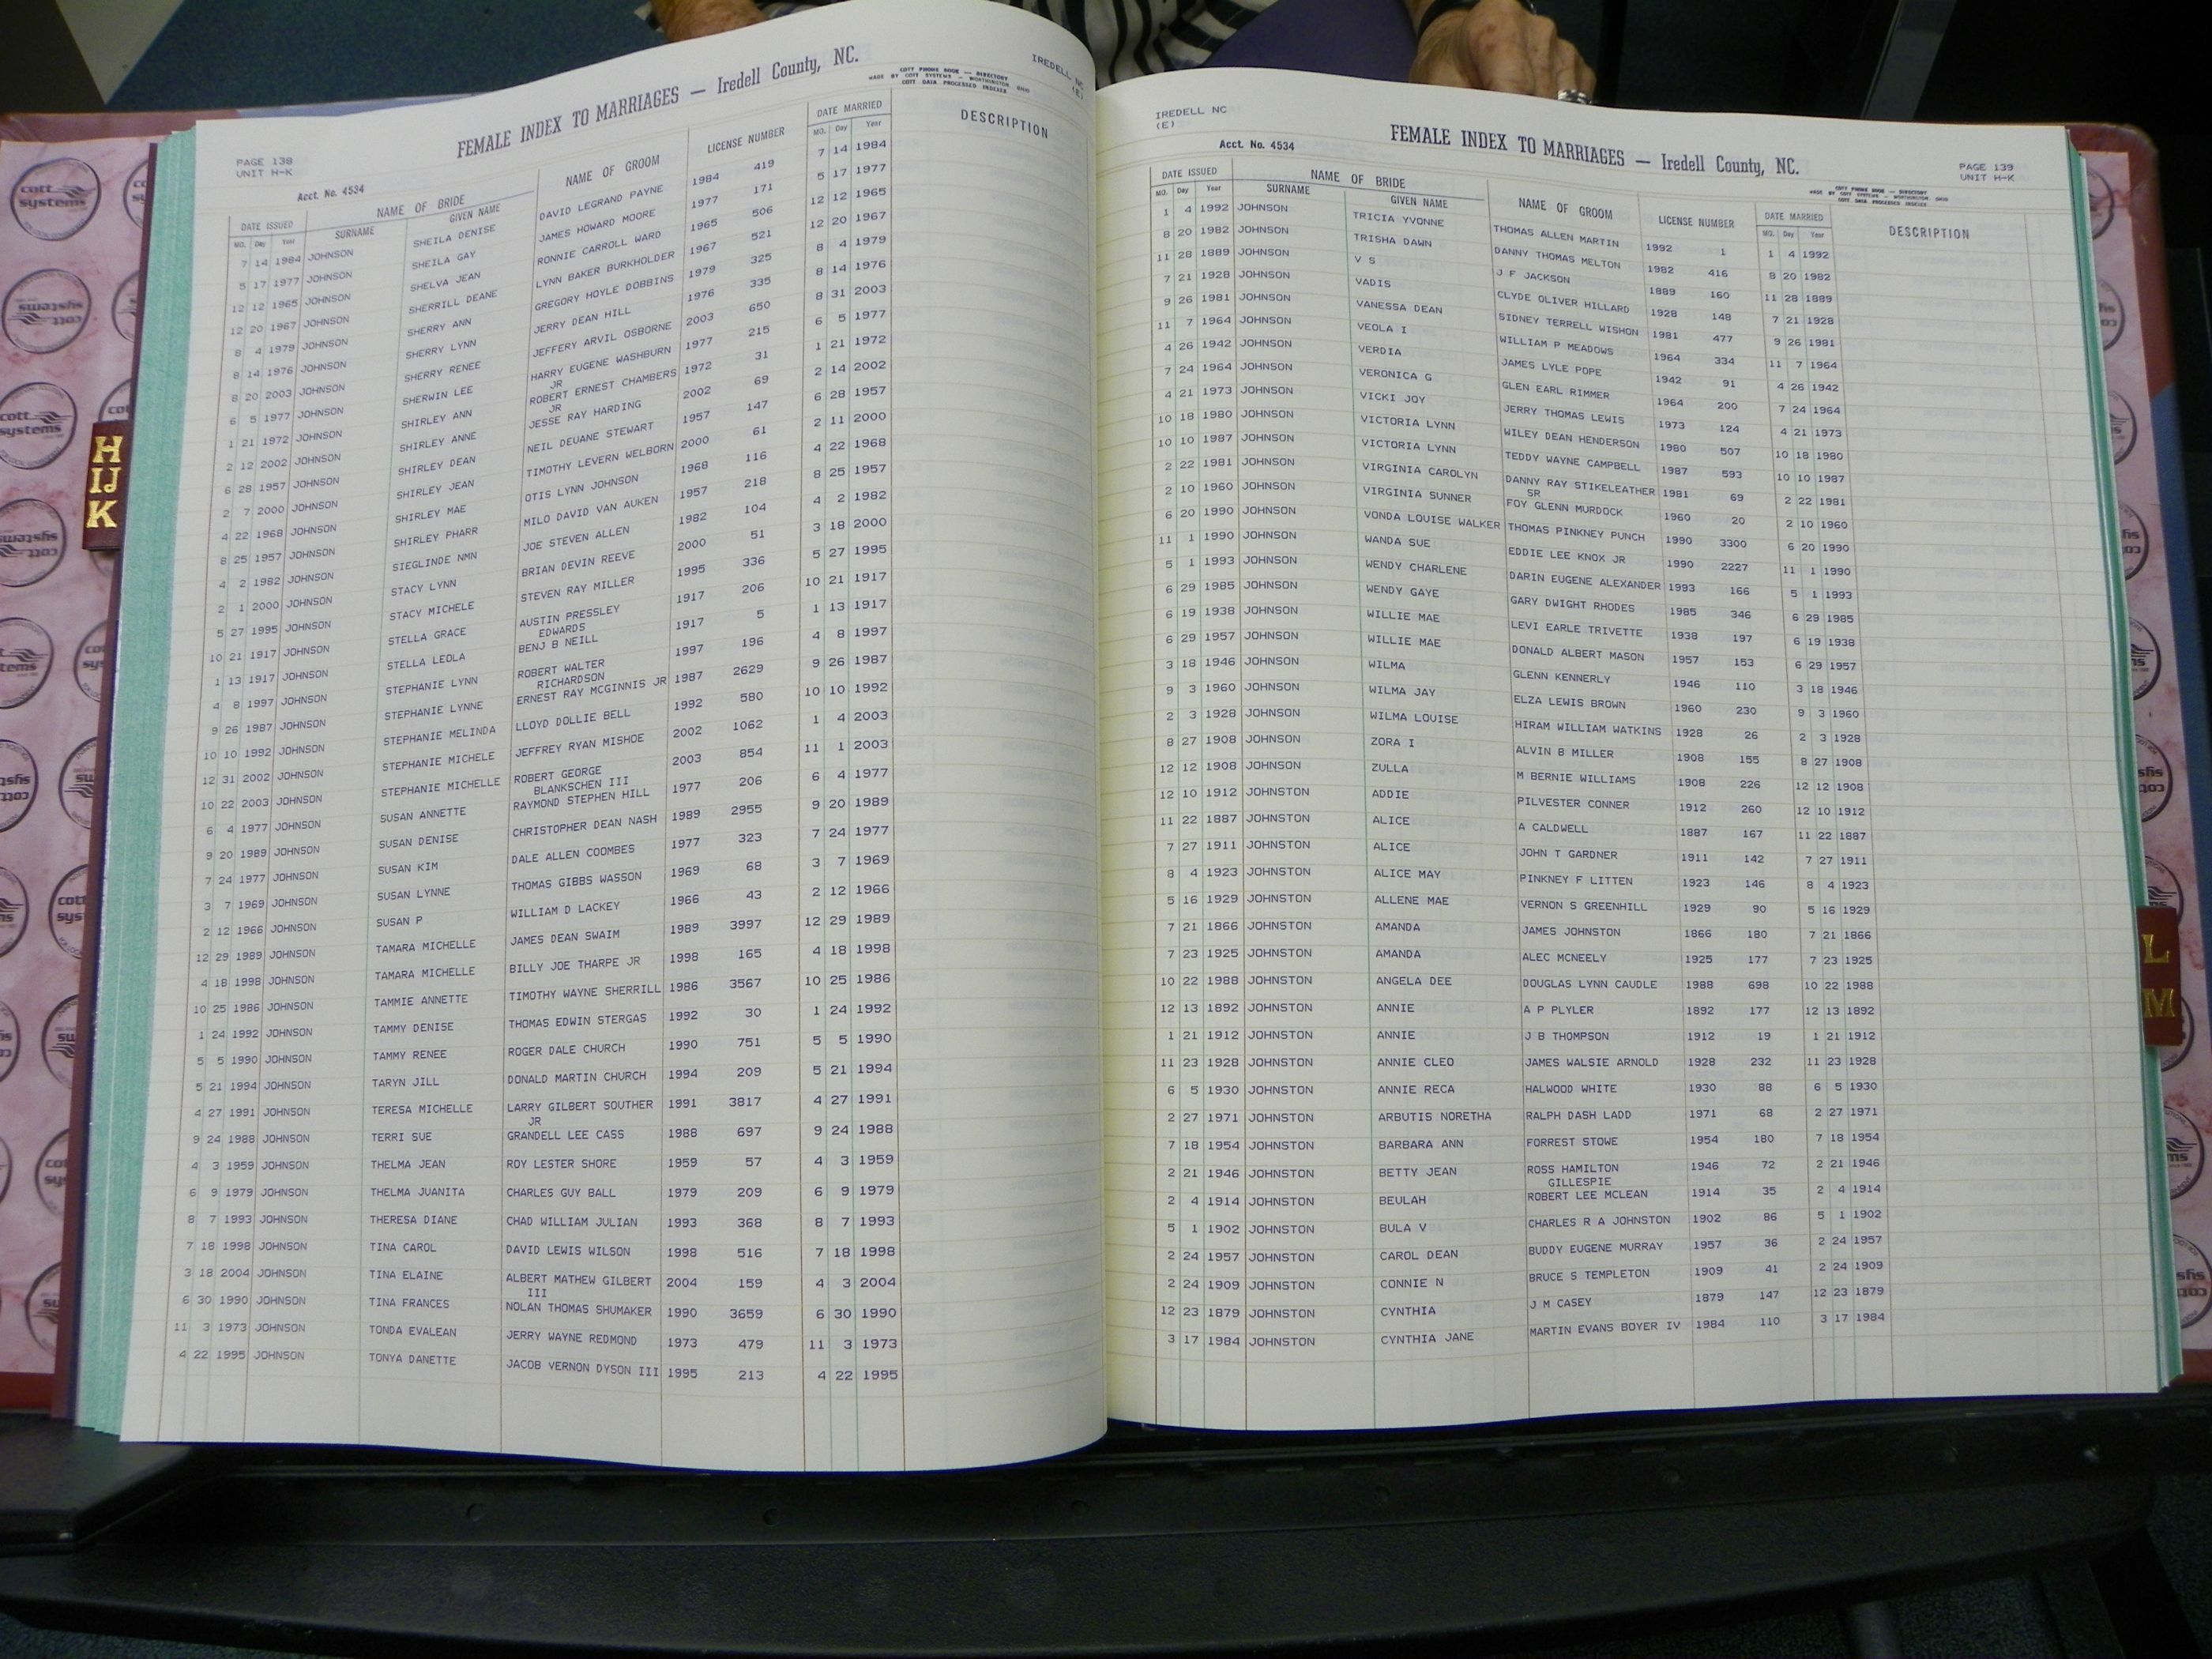 FEMALE INDEX TO MARRIAGES — Iredell County, NC.
COTT PHONE BOOK — DIRECTORY
MADE BY COTT SYSTEMS — WORTHINGTON, OHIO
COTT DATA PROCESSED INDEXES
IREDELL NC
(E)
PAGE 138
UNIT H-K
Acct. No. 4534
DATE ISSUED NAME OF BRIDE NAME OF GROOM LICENSE NUMBER DATE MARRIED DESCRIPTION
MO. Day Year SURNAME GIVEN NAME MO. Day Year
7 14 1984 JOHNSON SHEILA DENISE DAVID LEGRAND PAYNE 1984 419 7 14 1984
5 17 1977 JOHNSON SHEILA GAY JAMES HOWARD MOORE 1977 171 5 17 1977
12 12 1965 JOHNSON SHELVA JEAN RONNIE CARROLL WARD 1965 506 12 12 1965
12 20 1967 JOHNSON SHERRILL DEANE LYNN BAKER BURKHOLDER 1967 521 12 20 1967
8 4 1979 JOHNSON SHERRY ANN GREGORY HOYLE DOBBINS 1979 325 8 4 1979
8 14 1976 JOHNSON SHERRY LYNN JERRY DEAN HILL 1976 335 8 14 1976
8 20 2003 JOHNSON SHERRY RENEE JEFFERY ARVIL OSBORNE 2003 650 8 31 2003
6 5 1977 JOHNSON SHERWIN LEE HARRY EUGENE WASHBURN 1977 215 6 5 1977
JR
1 21 1972 JOHNSON SHIRLEY ANN ROBERT ERNEST CHAMBERS 1972 31 1 21 1972
JR
2 12 2002 JOHNSON SHIRLEY ANNE JESSE RAY HARDING 2002 69 2 14 2002
6 28 1957 JOHNSON SHIRLEY DEAN NEIL DEUANE STEWART 1957 147 6 28 1957
2 7 2000 JOHNSON SHIRLEY JEAN TIMOTHY LEVERN WELBORN 2000 61 2 11 2000
4 22 1968 JOHNSON SHIRLEY MAE OTIS LYNN JOHNSON 1968 116 4 22 1968
8 25 1957 JOHNSON SHIRLEY PHARR MILO DAVID VAN AUKEN 1957 218 8 25 1957
4 2 1982 JOHNSON SIEGLINDE NMN JOE STEVEN ALLEN 1982 104 4 2 1982
2 1 2000 JOHNSON STACY LYNN BRIAN DEVIN REEVE 2000 51 3 18 2000
5 27 1995 JOHNSON STACY MICHELE STEVEN RAY MILLER 1995 336 5 27 1995
10 21 1917 JOHNSON STELLA GRACE AUSTIN PRESSLEY 1917 206 10 21 1917
EDWARDS
1 13 1917 JOHNSON STELLA LEOLA BENJ B NEILL 1917 5 1 13 1917
4 8 1997 JOHNSON STEPHANIE LYNN ROBERT WALTER 1997 196 4 8 1997
RICHARDSON
9 26 1987 JOHNSON STEPHANIE LYNNE ERNEST RAY MCGINNIS JR 1987 2629 9 26 1987
10 10 1992 JOHNSON STEPHANIE MELINDA LLOYD DOLLIE BELL 1992 580 10 10 1992
12 31 2002 JOHNSON STEPHANIE MICHELE JEFFREY RYAN MISHOE 2002 1062 1 4 2003
10 22 2003 JOHNSON STEPHANIE MICHELLE ROBERT GEORGE 2003 854 11 1 2003
BLANKSCHEN III
6 4 1977 JOHNSON SUSAN ANNETTE RAYMOND STEPHEN HILL 1977 206 6 4 1977
9 20 1989 JOHNSON SUSAN DENISE CHRISTOPHER DEAN NASH 1989 2955 9 20 1989
7 24 1977 JOHNSON SUSAN KIM DALE ALLEN COOMBES 1977 323 7 24 1977
3 7 1969 JOHNSON SUSAN LYNNE THOMAS GIBBS WASSON 1969 68 3 7 1969
2 12 1966 JOHNSON SUSAN P WILLIAM D LACKEY 1966 43 2 12 1966
12 29 1989 JOHNSON TAMARA MICHELLE JAMES DEAN SWAIM 1989 3997 12 29 1989
4 18 1998 JOHNSON TAMARA MICHELLE BILLY JOE THARPE JR 1998 165 4 18 1998
10 25 1986 JOHNSON TAMMIE ANNETTE TIMOTHY WAYNE SHERRILL 1986 3567 10 25 1986
1 24 1992 JOHNSON TAMMY DENISE THOMAS EDWIN STERGAS 1992 30 1 24 1992
5 5 1990 JOHNSON TAMMY RENEE ROGER DALE CHURCH 1990 751 5 5 1990
5 21 1994 JOHNSON TARYN JILL DONALD MARTIN CHURCH 1994 209 5 21 1994
4 27 1991 JOHNSON TERESA MICHELLE LARRY GILBERT SOUTHER 1991 3817 4 27 1991
JR
9 24 1988 JOHNSON TERRI SUE GRANDELL LEE CASS 1988 697 9 24 1988
4 3 1959 JOHNSON THELMA JEAN ROY LESTER SHORE 1959 57 4 3 1959
6 9 1979 JOHNSON THELMA JUANITA CHARLES GUY BALL 1979 209 6 9 1979
8 7 1993 JOHNSON THERESA DIANE CHAD WILLIAM JULIAN 1993 368 8 7 1993
7 18 1998 JOHNSON TINA CAROL DAVID LEWIS WILSON 1998 516 7 18 1998
3 18 2004 JOHNSON TINA ELAINE ALBERT MATHEW GILBERT 2004 159 4 3 2004
III
6 30 1990 JOHNSON TINA FRANCES NOLAN THOMAS SHUMAKER 1990 3659 6 30 1990
11 3 1973 JOHNSON TONDA EVALEAN JERRY WAYNE REDMOND 1973 479 11 3 1973
4 22 1995 JOHNSON TONYA DANETTE JACOB VERNON DYSON III 1995 213 4 22 1995
IREDELL NC
(E)
Acct. No. 4534
FEMALE INDEX TO MARRIAGES — Iredell County, NC.
PAGE 139
UNIT H-K
COTT PHONE BOOK — DIRECTORY
MADE BY COTT SYSTEMS — WORTHINGTON, OHIO
COTT DATA PROCESSED INDEXES
DATE ISSUED NAME OF BRIDE NAME OF GROOM LICENSE NUMBER DATE MARRIED DESCRIPTION
MO. Day Year SURNAME GIVEN NAME MO. Day Year
1 4 1992 JOHNSON TRICIA YVONNE THOMAS ALLEN MARTIN 1992 1 1 4 1992
8 20 1982 JOHNSON TRISHA DAWN DANNY THOMAS MELTON 1982 416 8 20 1982
11 28 1889 JOHNSON V S J F JACKSON 1889 160 11 28 1889
7 21 1928 JOHNSON VADIS CLYDE OLIVER HILLARD 1928 148 7 21 1928
9 26 1981 JOHNSON VANESSA DEAN SIDNEY TERRELL WISHON 1981 477 9 26 1981
11 7 1964 JOHNSON VEOLA I WILLIAM P MEADOWS 1964 334 11 7 1964
4 26 1942 JOHNSON VERDIA JAMES LYLE POPE 1942 91 4 26 1942
7 24 1964 JOHNSON VERONICA G GLEN EARL RIMMER 1964 200 7 24 1964
4 21 1973 JOHNSON VICKI JOY JERRY THOMAS LEWIS 1973 124 4 21 1973
10 18 1980 JOHNSON VICTORIA LYNN WILEY DEAN HENDERSON 1980 507 10 18 1980
10 10 1987 JOHNSON VICTORIA LYNN TEDDY WAYNE CAMPBELL 1987 593 10 10 1987
2 22 1981 JOHNSON VIRGINIA CAROLYN DANNY RAY STIKELEATHER 1981 69 2 22 1981
SR
2 10 1960 JOHNSON VIRGINIA SUNNER FOY GLENN MURDOCK 1960 20 2 10 1960
6 20 1990 JOHNSON VONDA LOUISE WALKER THOMAS PINKNEY PUNCH 1990 3300 6 20 1990
11 1 1990 JOHNSON WANDA SUE EDDIE LEE KNOX JR 1990 2227 11 1 1990
5 1 1993 JOHNSON WENDY CHARLENE DARIN EUGENE ALEXANDER 1993 166 5 1 1993
6 29 1985 JOHNSON WENDY GAYE GARY DWIGHT RHODES 1985 346 6 29 1985
6 19 1938 JOHNSON WILLIE MAE LEVI EARLE TRIVETTE 1938 197 6 19 1938
6 29 1957 JOHNSON WILLIE MAE DONALD ALBERT MASON 1957 153 6 29 1957
3 18 1946 JOHNSON WILMA GLENN KENNERLY 1946 110 3 18 1946
9 3 1960 JOHNSON WILMA JAY ELZA LEWIS BROWN 1960 230 9 3 1960
2 3 1928 JOHNSON WILMA LOUISE HIRAM WILLIAM WATKINS 1928 26 2 3 1928
8 27 1908 JOHNSON ZORA I ALVIN B MILLER 1908 155 8 27 1908
12 12 1908 JOHNSON ZULLA M BERNIE WILLIAMS 1908 226 12 12 1908
12 10 1912 JOHNSTON ADDIE PILVESTER CONNER 1912 260 12 10 1912
11 22 1887 JOHNSTON ALICE A CALDWELL 1887 167 11 22 1887
7 27 1911 JOHNSTON ALICE JOHN T GARDNER 1911 142 7 27 1911
8 4 1923 JOHNSTON ALICE MAY PINKNEY F LITTEN 1923 146 8 4 1923
5 16 1929 JOHNSTON ALLENE MAE VERNON S GREENHILL 1929 90 5 16 1929
7 21 1866 JOHNSTON AMANDA JAMES JOHNSTON 1866 180 7 21 1866
7 23 1925 JOHNSTON AMANDA ALEC MCNEELY 1925 177 7 23 1925
10 22 1988 JOHNSTON ANGELA DEE DOUGLAS LYNN CAUDLE 1988 698 10 22 1988
12 13 1892 JOHNSTON ANNIE A P PLYLER 1892 177 12 13 1892
1 21 1912 JOHNSTON ANNIE J B THOMPSON 1912 19 1 21 1912
11 23 1928 JOHNSTON ANNIE CLEO JAMES WALSIE ARNOLD 1928 232 11 23 1928
6 5 1930 JOHNSTON ANNIE RECA HALWOOD WHITE 1930 88 6 5 1930
2 27 1971 JOHNSTON ARBUTIS NORETHA RALPH DASH LADD 1971 68 2 27 1971
7 18 1954 JOHNSTON BARBARA ANN FORREST STOWE 1954 180 7 18 1954
2 21 1946 JOHNSTON BETTY JEAN ROSS HAMILTON 1946 72 2 21 1946
GILLESPIE
2 4 1914 JOHNSTON BEULAH ROBERT LEE MCLEAN 1914 35 2 4 1914
5 1 1902 JOHNSTON BULA V CHARLES R A JOHNSTON 1902 86 5 1 1902
2 24 1957 JOHNSTON CAROL DEAN BUDDY EUGENE MURRAY 1957 36 2 24 1957
2 24 1909 JOHNSTON CONNIE N BRUCE S TEMPLETON 1909 41 2 24 1909
12 23 1879 JOHNSTON CYNTHIA J M CASEY 1879 147 12 23 1879
3 17 1984 JOHNSTON CYNTHIA JANE MARTIN EVANS BOYER IV 1984 110 3 17 1984
H
IJ
K
L
M
cott
systems